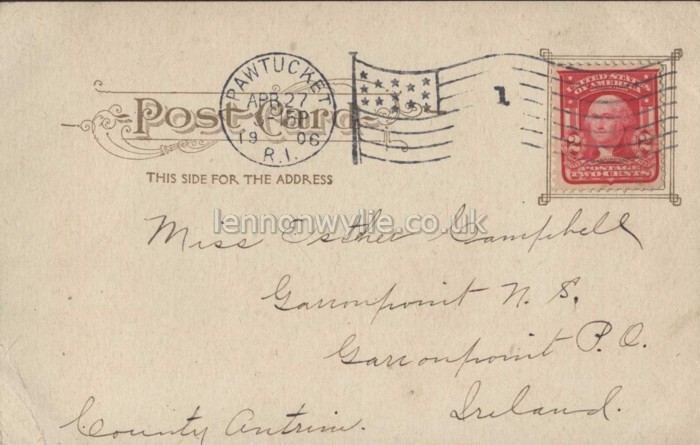 PAWTUCKET
APR 27
1906
R.I.
1
Post Card
THIS SIDE FOR THE ADDRESS
UNITED STATES
OF AMERICA
2 2
POSTAGE
TWO CENTS
lennonwylie.co.uk
Miss Esther Campbell
Garronpoint N. S.
Garronpoint P. O.
County Antrim. Ireland.